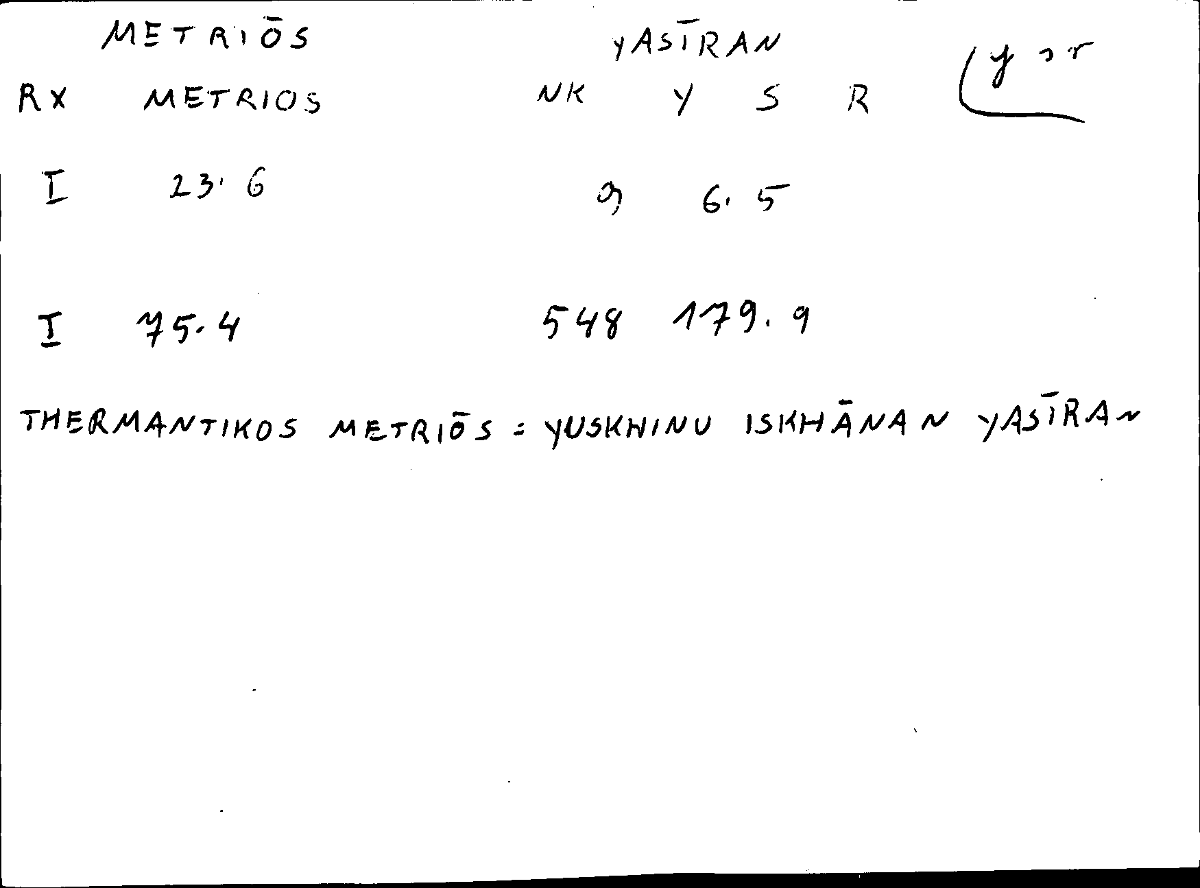 METRIŌS YASĪRAN
RX METRIOS NK Y S R (ysr
I 23.6 9 6.5
I 75.4 548 179.9
THERMANTIKOS METRIŌS = YUSKHINU ISKHĀNAN YASĪRAN